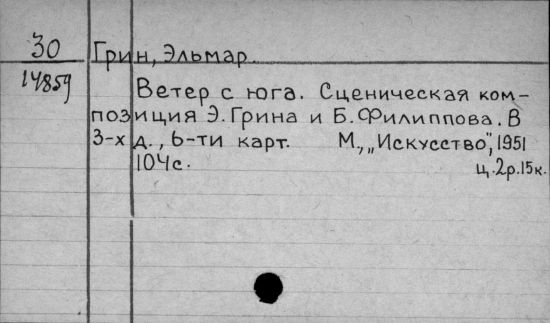 30
14859
Грин, Эльмар.
Ветер с юга. Сценическая ком-
позиция Э. Грина и Б. Филиппова. В
3-х д., 6-ти карт. М., „Искусство", 1951
104с. ц. 2р. 15к.